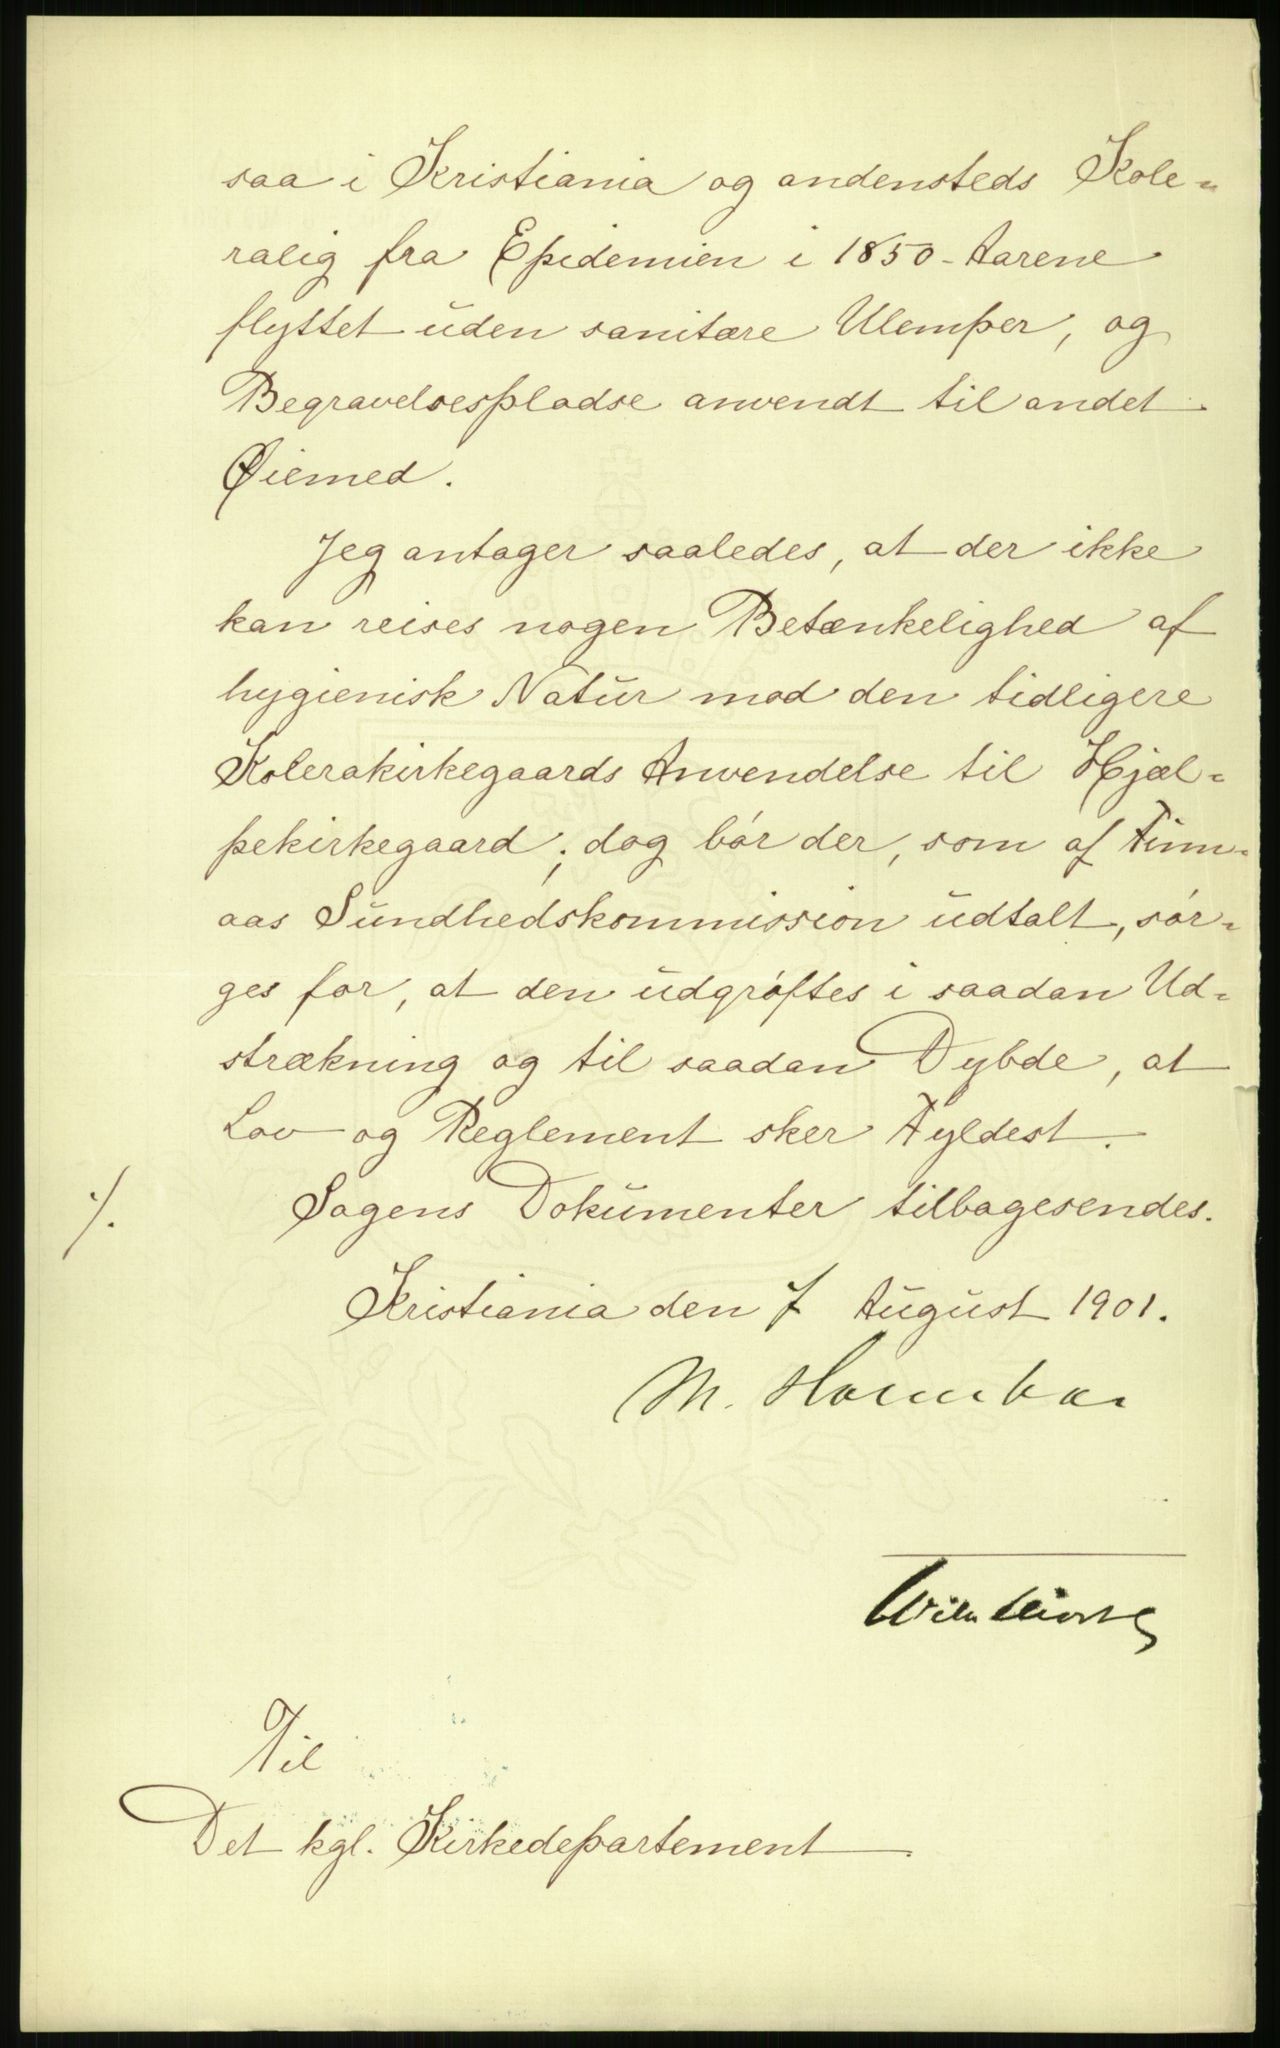 saa i Kristiania og andensteds Kole-
ralig fra Epidemien i 1850-Aarene
flyttet uden sanitære Ulemper, og
Begravelsespladse anvendt til andet
Øiemed.
Jeg antager saaledes, at der ikke
kan reises nogen Betænkelighed af
hygienisk Natur mod den tidligere
Kolerakirkegaards Anvendelse til Hjæl-
pekirkegaard; dog bør der, som af Finn-
aas Sundhedskommission udtalt, sør-
ges for, at den udgrøftes i saadan Ud-
strækning og til saadan Dybde, at
Lov og Reglement sker Fyldest.
./. Sagens Dokumenter tilbagesendes.
Kristiania den 7 August 1901.
M. Holmboe
Til
Det kgl. Kirkedepartement.